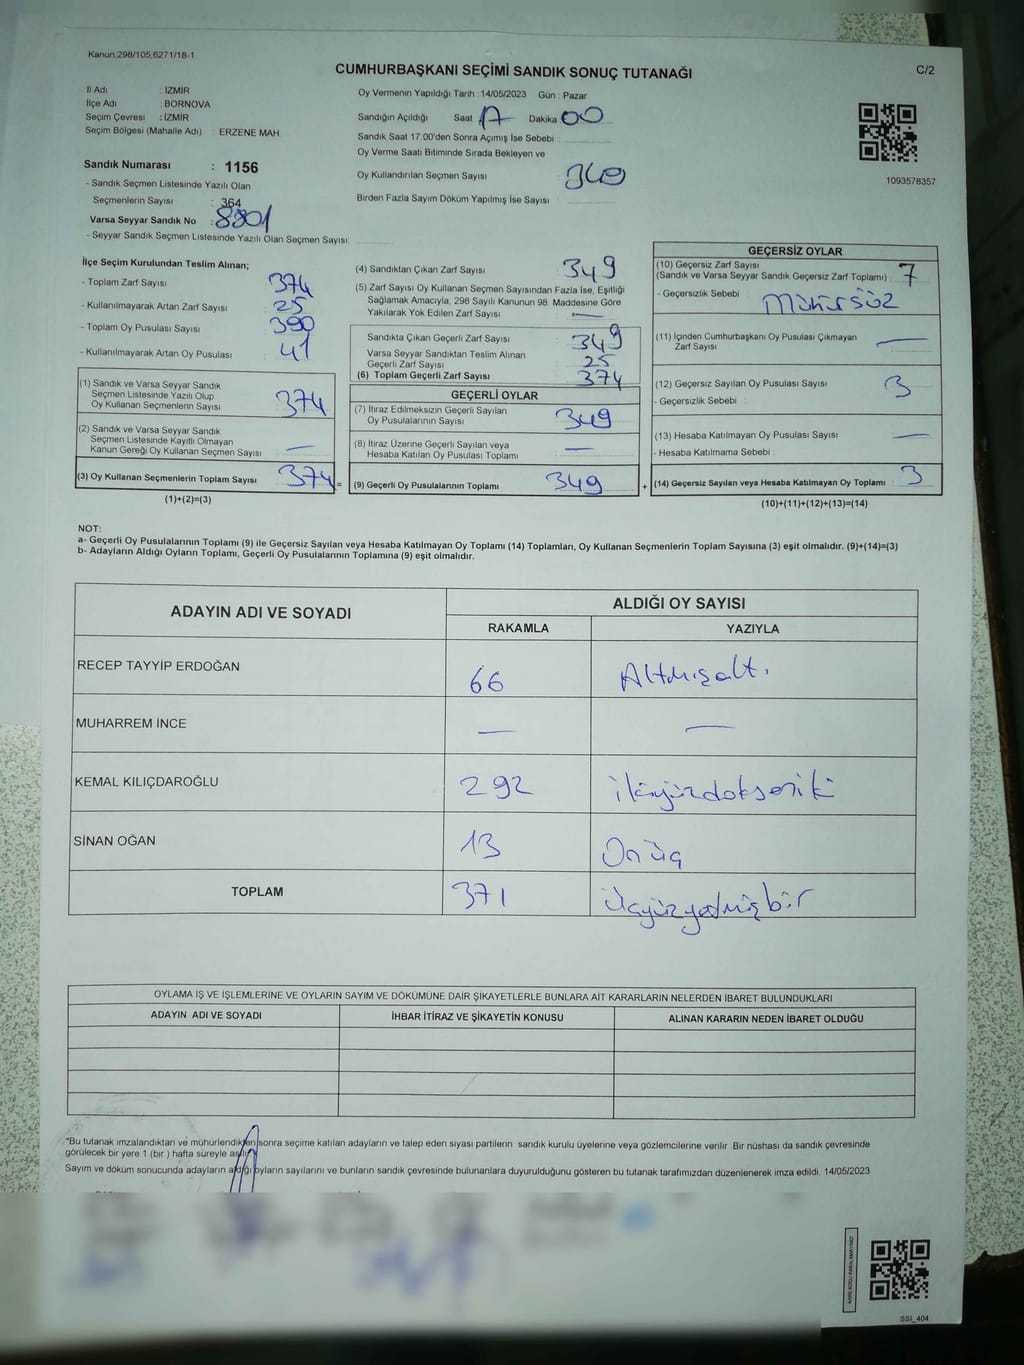 Kanun;298/105;6271/18-1
CUMHURBAŞKANI SEÇİMİ SANDIK SONUÇ TUTANAĞI
C/2
İl Adı : İZMİR
İlçe Adı : BORNOVA
Seçim Çevresi : İZMİR
Seçim Bölgesi (Mahalle Adı) : ERZENE MAH
Sandık Numarası : 1156
- Sandık Seçmen Listesinde Yazılı Olan
Seçmenlerin Sayısı : 364
Varsa Seyyar Sandık No : 8801
- Seyyar Sandık Seçmen Listesinde Yazılı Olan Seçmen Sayısı:
Oy Vermenin Yapıldığı Tarih : 14/05/2023 Gün : Pazar
Sandığın Açıldığı Saat 17 Dakika 00
Sandık Saat 17:00'den Sonra Açımış İse Sebebi :
Oy Verme Saati Bitiminde Sırada Bekleyen ve
Oy Kullandırılan Seçmen Sayısı
Birden Fazla Sayım Döküm Yapılmış İse Sayısı :
1093578357
İlçe Seçim Kurulundan Teslim Alınan;
- Toplam Zarf Sayısı : 374
- Kullanılmayarak Artan Zarf Sayısı : 25
- Toplam Oy Pusulası Sayısı : 390
- Kullanılmayarak Artan Oy Pusulası : 41
(1) Sandık ve Varsa Seyyar Sandık
Seçmen Listesinde Yazılı Olup
Oy Kullanan Seçmenlerin Sayısı : 374
(2) Sandık ve Varsa Seyyar Sandık
Seçmen Listesinde Kayıtlı Olmayan
Kanun Gereği Oy Kullanan Seçmen Sayısı : —
(3) Oy Kullanan Seçmenlerin Toplam Sayısı : 374 =
(1)+(2)=(3)
(4) Sandıktan Çıkan Zarf Sayısı : 349
(5) Zarf Sayısı Oy Kullanan Seçmen Sayısından Fazla İse, Eşitliği
Sağlamak Amacıyla, 298 Sayılı Kanunun 98. Maddesine Göre
Yakılarak Yok Edilen Zarf Sayısı : —
Sandıkta Çıkan Geçerli Zarf Sayısı : 349
Varsa Seyyar Sandıktan Teslim Alınan
Geçerli Zarf Sayısı : 25
(6) Toplam Geçerli Zarf Sayısı : 374
GEÇERLİ OYLAR
(7) İtiraz Edilmeksizin Geçerli Sayılan
Oy Pusulalarının Sayısı : 349
(8) İtiraz Üzerine Geçerli Sayılan veya
Hesaba Katılan Oy Pusulası Toplamı : —
(9) Geçerli Oy Pusulalarının Toplamı : 349 +
GEÇERSİZ OYLAR
(10) Geçersiz Zarf Sayısı
(Sandık ve Varsa Seyyar Sandık Geçersiz Zarf Toplamı) : 7
- Geçersizlik Sebebi : Mühürsüz
(11) İçinden Cumhurbaşkanı Oy Pusulası Çıkmayan
Zarf Sayısı : —
(12) Geçersiz Sayılan Oy Pusulası Sayısı : 3
- Geçersizlik Sebebi :
(13) Hesaba Katılmayan Oy Pusulası Sayısı : —
- Hesaba Katılmama Sebebi :
(14) Geçersiz Sayılan veya Hesaba Katılmayan Oy Toplamı : 3
(10)+(11)+(12)+(13)=(14)
NOT:
a- Geçerli Oy Pusulalarının Toplamı (9) ile Geçersiz Sayılan veya Hesaba Katılmayan Oy Toplamı (14) Toplamları, Oy Kullanan Seçmenlerin Toplam Sayısına (3) eşit olmalıdır. (9)+(14)=(3)
b- Adayların Aldığı Oyların Toplamı, Geçerli Oy Pusulalarının Toplamına (9) eşit olmalıdır.
ADAYIN ADI VE SOYADI
ALDIĞI OY SAYISI
RAKAMLA YAZIYLA
RECEP TAYYİP ERDOĞAN 66 Altmışaltı
MUHARREM İNCE — —
KEMAL KILIÇDAROĞLU 292 İkiyüzdokseniki
SİNAN OĞAN 13 Onüç
TOPLAM 371 Üçyüzyetmişbir
OYLAMA İŞ VE İŞLEMLERİNE VE OYLARIN SAYIM VE DÖKÜMÜNE DAİR ŞİKAYETLERLE BUNLARA AİT KARARLARIN NELERDEN İBARET BULUNDUKLARI
ADAYIN ADI VE SOYADI İHBAR İTİRAZ VE ŞİKAYETİN KONUSU ALINAN KARARIN NEDEN İBARET OLDUĞU
*Bu tutanak imzalandıktan ve mühürlendikten sonra seçime katılan adayların ve talep eden siyasi partilerin sandık kurulu üyelerine veya gözlemcilerine verilir. Bir nüshası da sandık çevresinde
görülecek bir yere 1 (bir ) hafta süreyle asılır.
Sayım ve döküm sonucunda adayların aldığı oyların sayılarını ve bunların sandık çevresinde bulunanlara duyurulduğunu gösteren bu tutanak tarafımızdan düzenlenerek imza edildi. 14/05/2023
KARE KODU KARALAMAYINIZ!
SSI_404